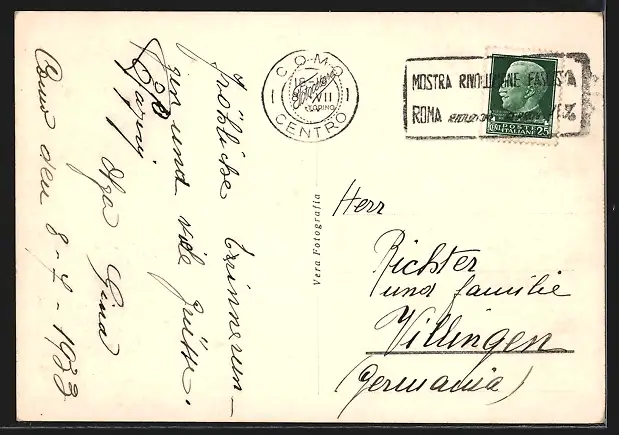 Como den 8-7-1933
fröhliche Erinnerun-
gen und viele Grüsse.
Gina
Vera Fotografia
COMO
CENTRO
VII
MOSTRA RIVOLUZIONE FASCISTA
ROMA
POSTE ITALIANE
25
Herr
Richter
und familie
Villingen
(Germania)